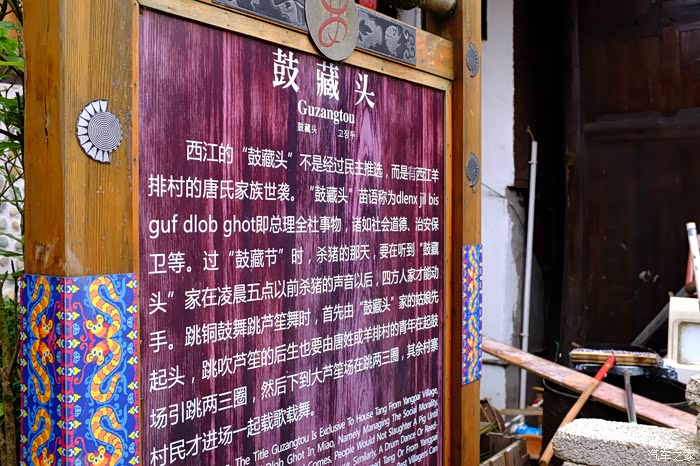 鼓藏头
Guzangtou
鼓藏头 고장두
西江的“鼓藏头”不是经过民主推选，而是与西江羊
排村的唐氏家族世袭。“鼓藏头”苗语称为dlenx jil bis
guf dlob ghot即总理全社事物，诸如社会道德、治安保
卫等。过“鼓藏节”时，杀猪的那天，要在听到“鼓藏
头”家在凌晨五点以前杀猪的声音以后，四方人家才能动
手。跳铜鼓舞跳芦笙舞时，首先由“鼓藏头”家的姑娘先
起头，跳吹芦笙的后生也要由唐姓或羊排村的青年在起鼓
场引跳两三圈，然后下到大芦笙场在跳两三圈，其余村寨
村民才进场一起载歌载舞。
The Title Guzangtou Is Exclusive To House Tang From Yangpai Village,
Dlob Ghot In Miao, Namely Managing The Social Morality,
Comes, People Would Not Slaughter A Pig Until
Similarly, A Drum Dance Or Reed-
Tang Or From Yangpai
Villagers Can
汽车之家